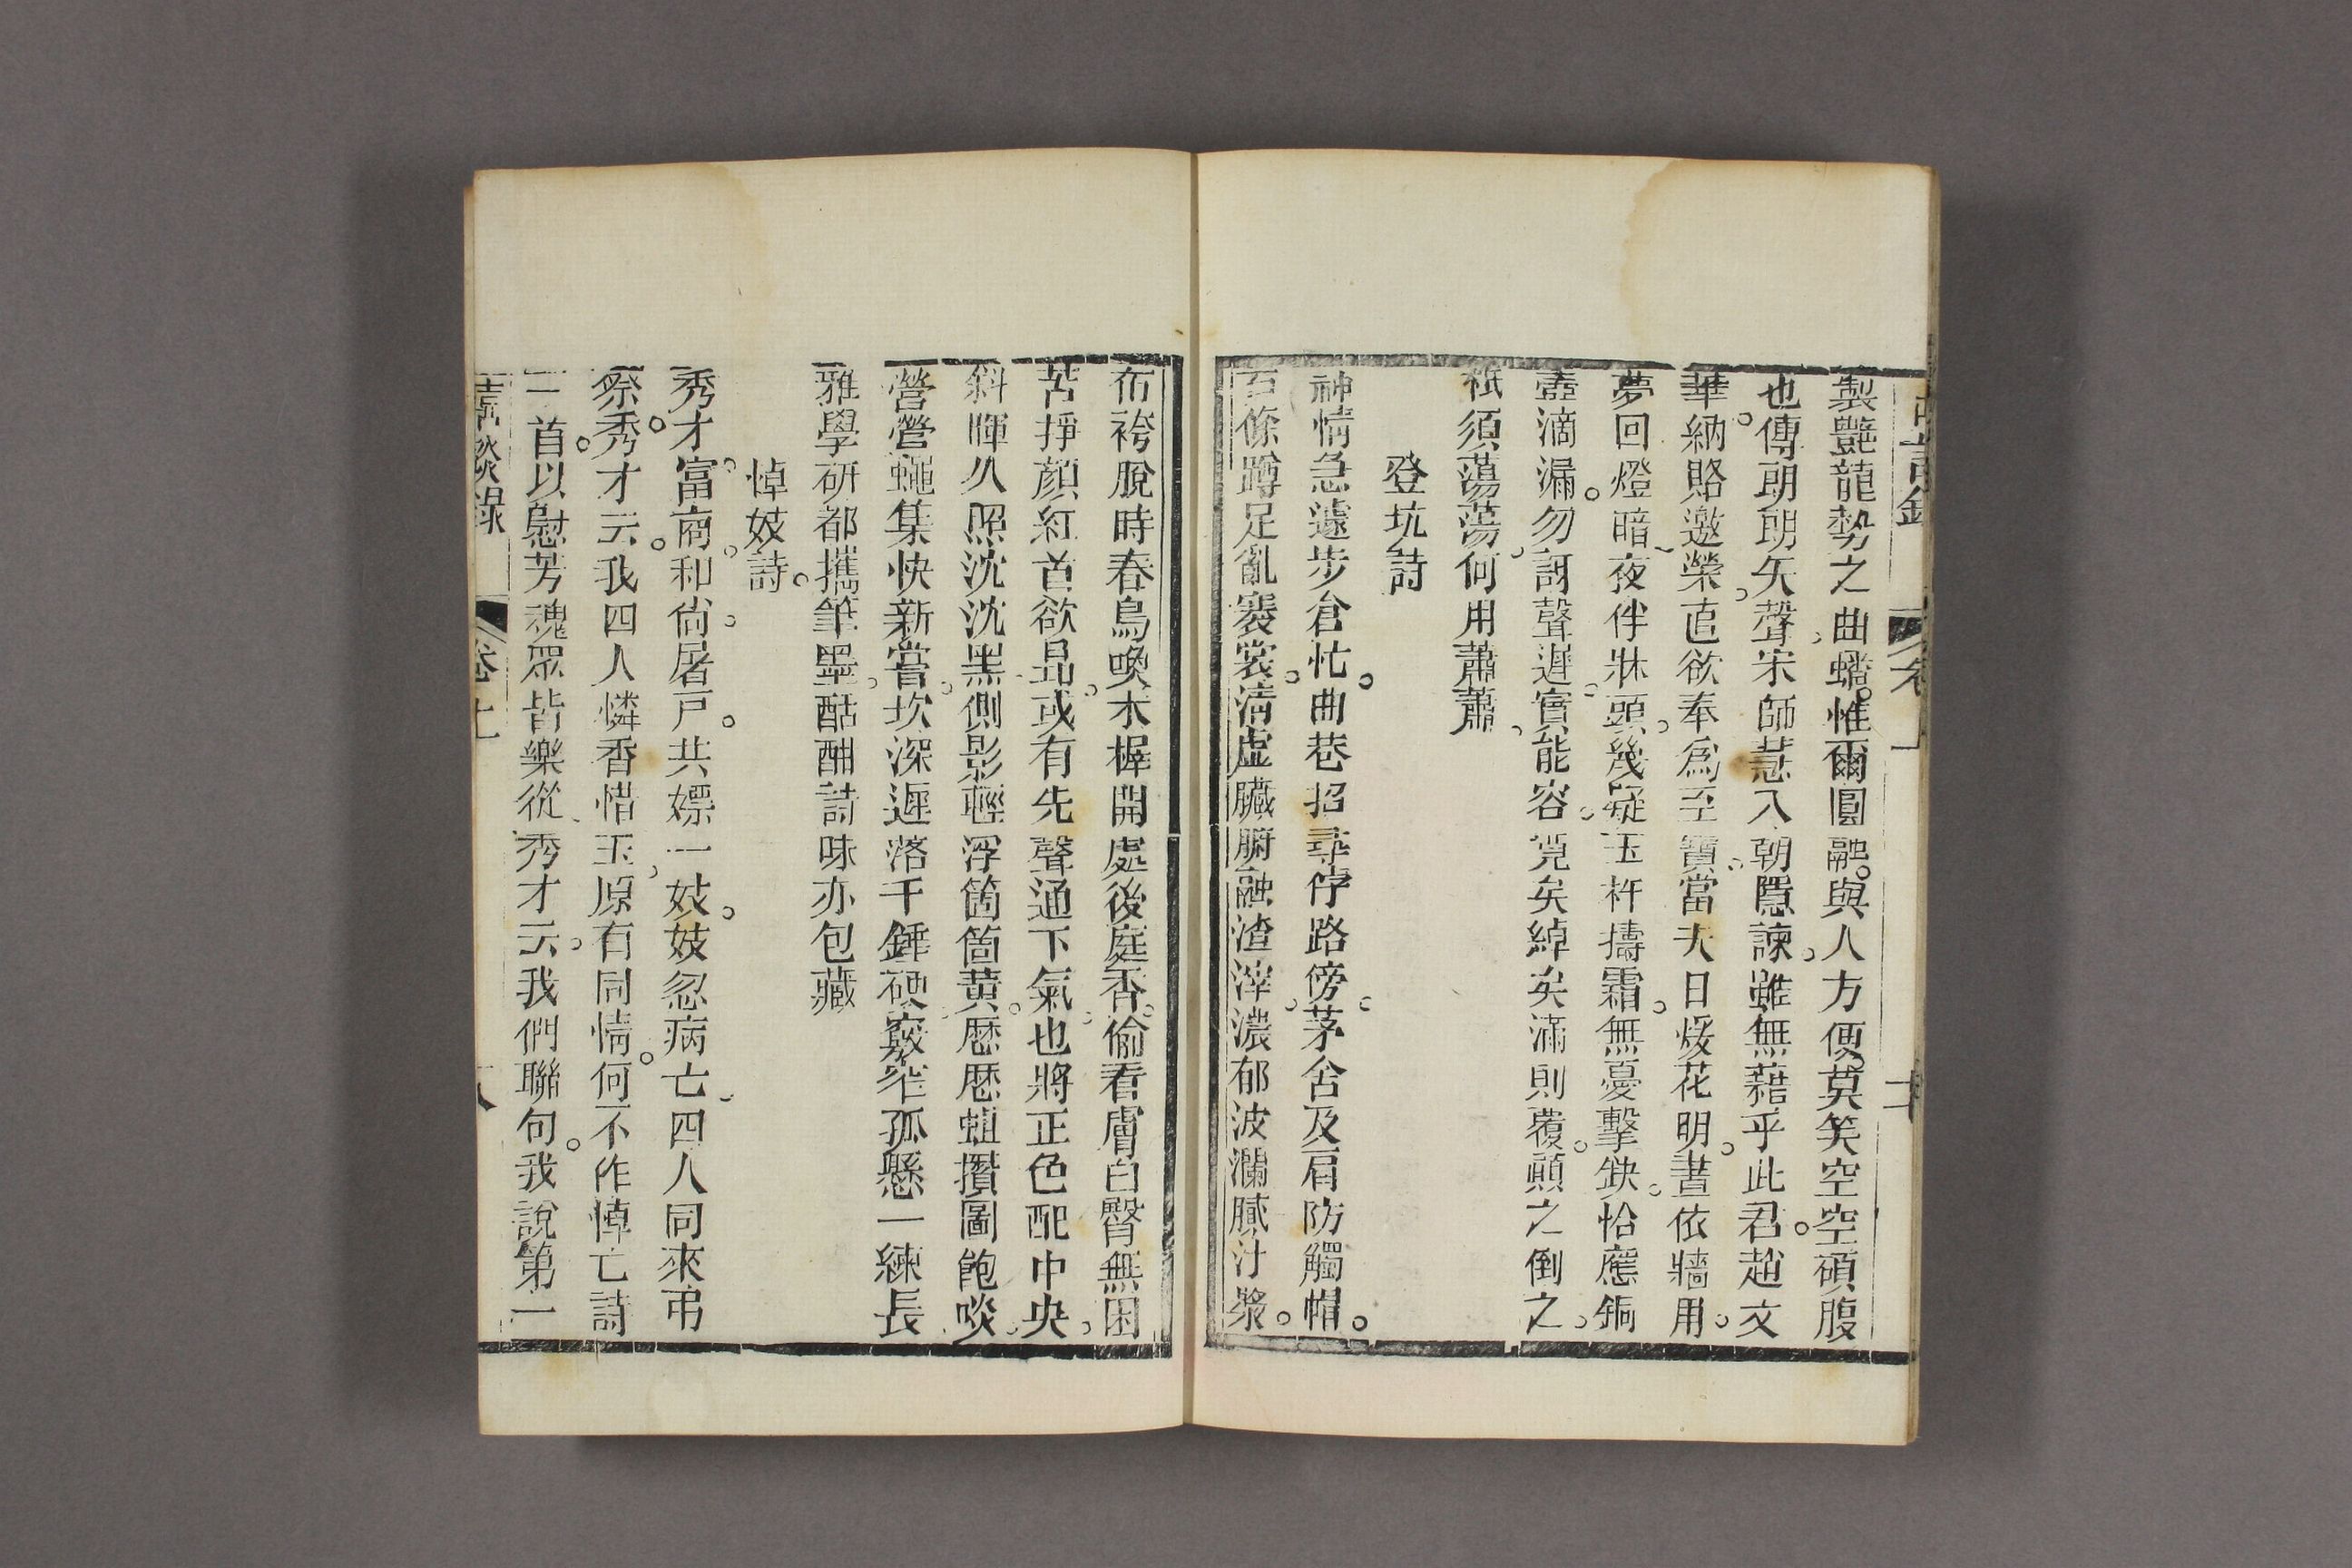 製艷龍勢之曲蟠惟爾圓融與人方便莫笑空空碩腹
也傳朗朗矢聲宋師慧入朝隱諫雖無藉乎此君趙文
華納賂邀榮直欲奉為至寶當夫日煖花明晝依牆用
夢回燈暗夜伴牀頭幾疑玉杵擣霜無憂擊缺恰應銅
壼滴漏勿訝聲遲實能容寬矣綽矣滿則覆顛之倒之
秪須蕩蕩何用蕭蕭
登坑詩
神情急遽步倉忙曲巷招尋侼路傍茅舍及肩防觸帽
百條蹲足亂褰裳淸虛臟腑融渣滓濃郁波瀾膩汁漿
布袴脫時春鳥喚木樨開處後庭香偷看膚白臀無困
苦掙顏紅首欲昻或有先聲通下氣也將正色配中央
斜暉久照沈沈黑側影輕浮箇箇黃歷歷蛆攢圖飽啖
營營蠅集快新嘗坎深遲落千錘硬竅窄孤懸一練長
雅學硏都攜筆墨酤酣詩味亦包藏
悼妓詩
秀才富商和尙屠戶共嫖一妓妓忽病亡四人同來弔
祭秀才云我四人憐香惜玉原有同情何不作悼亡詩
一首以慰芳魂眾皆樂從秀才云我們聯句我說第一
嘻談錄
卷上